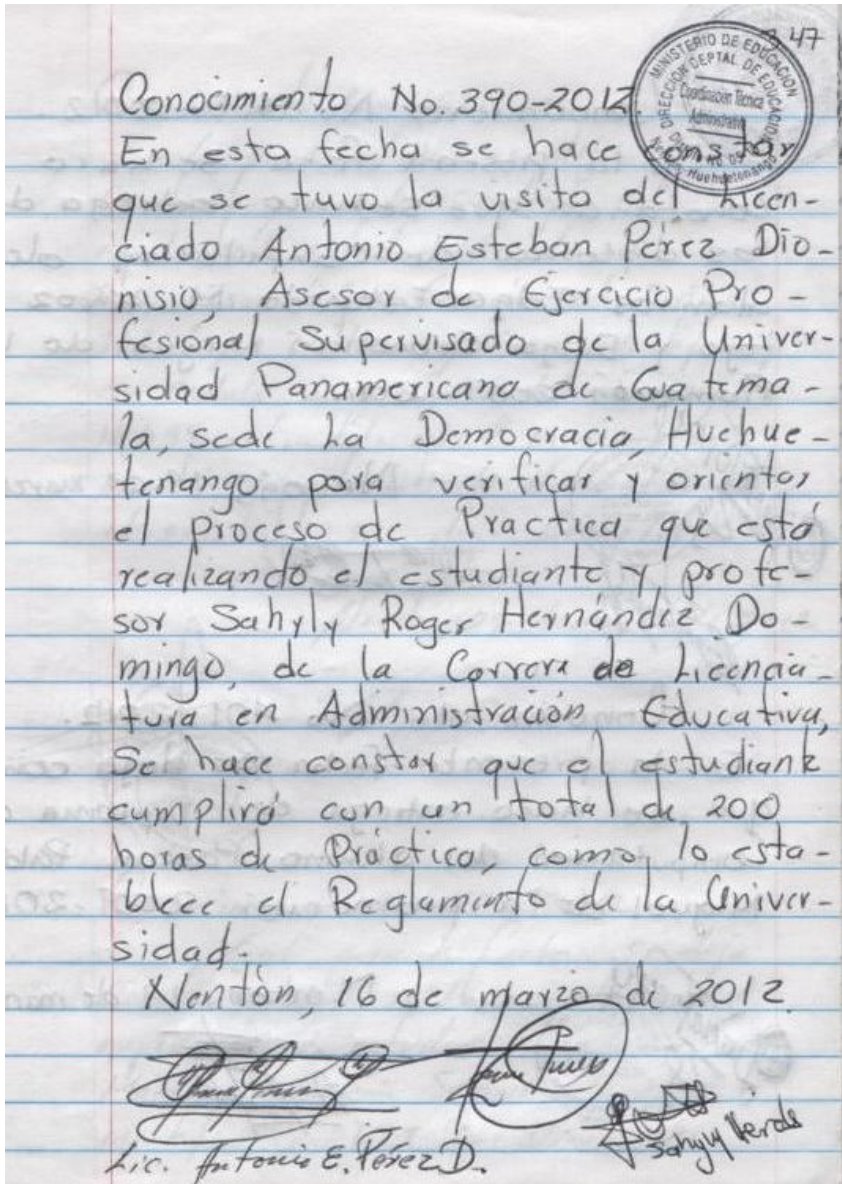 347
MINISTERIO DE EDUCACIÓN
DIRECCIÓN DEPTAL DE EDUCACIÓN
Coordinación Técnica
Administrativa
Huehuetenango
Conocimiento No. 390-2012
En esta fecha se hace constar
que se tuvo la visita del Licen-
ciado Antonio Esteban Pérez Dio-
nisio, Asesor de Ejercicio Pro-
fesional Supervisado de la Univer-
sidad Panamericana de Guatema-
la, sede La Democracia, Huehue-
tenango para verificar y orientar
el proceso de Practica que está
realizando el estudiante y profe-
sor Sahyly Roger Hernández Do-
mingo, de la Carrera de Licencia-
tura en Administración Educativa,
Se hace constar que el estudiante
cumplirá con un total de 200
horas de Práctica, como lo esta-
blece el Reglamento de la Univer-
sidad.-
Nentón, 16 de marzo de 2012.
Lic. Antonio E. Pérez D.
Sahyly